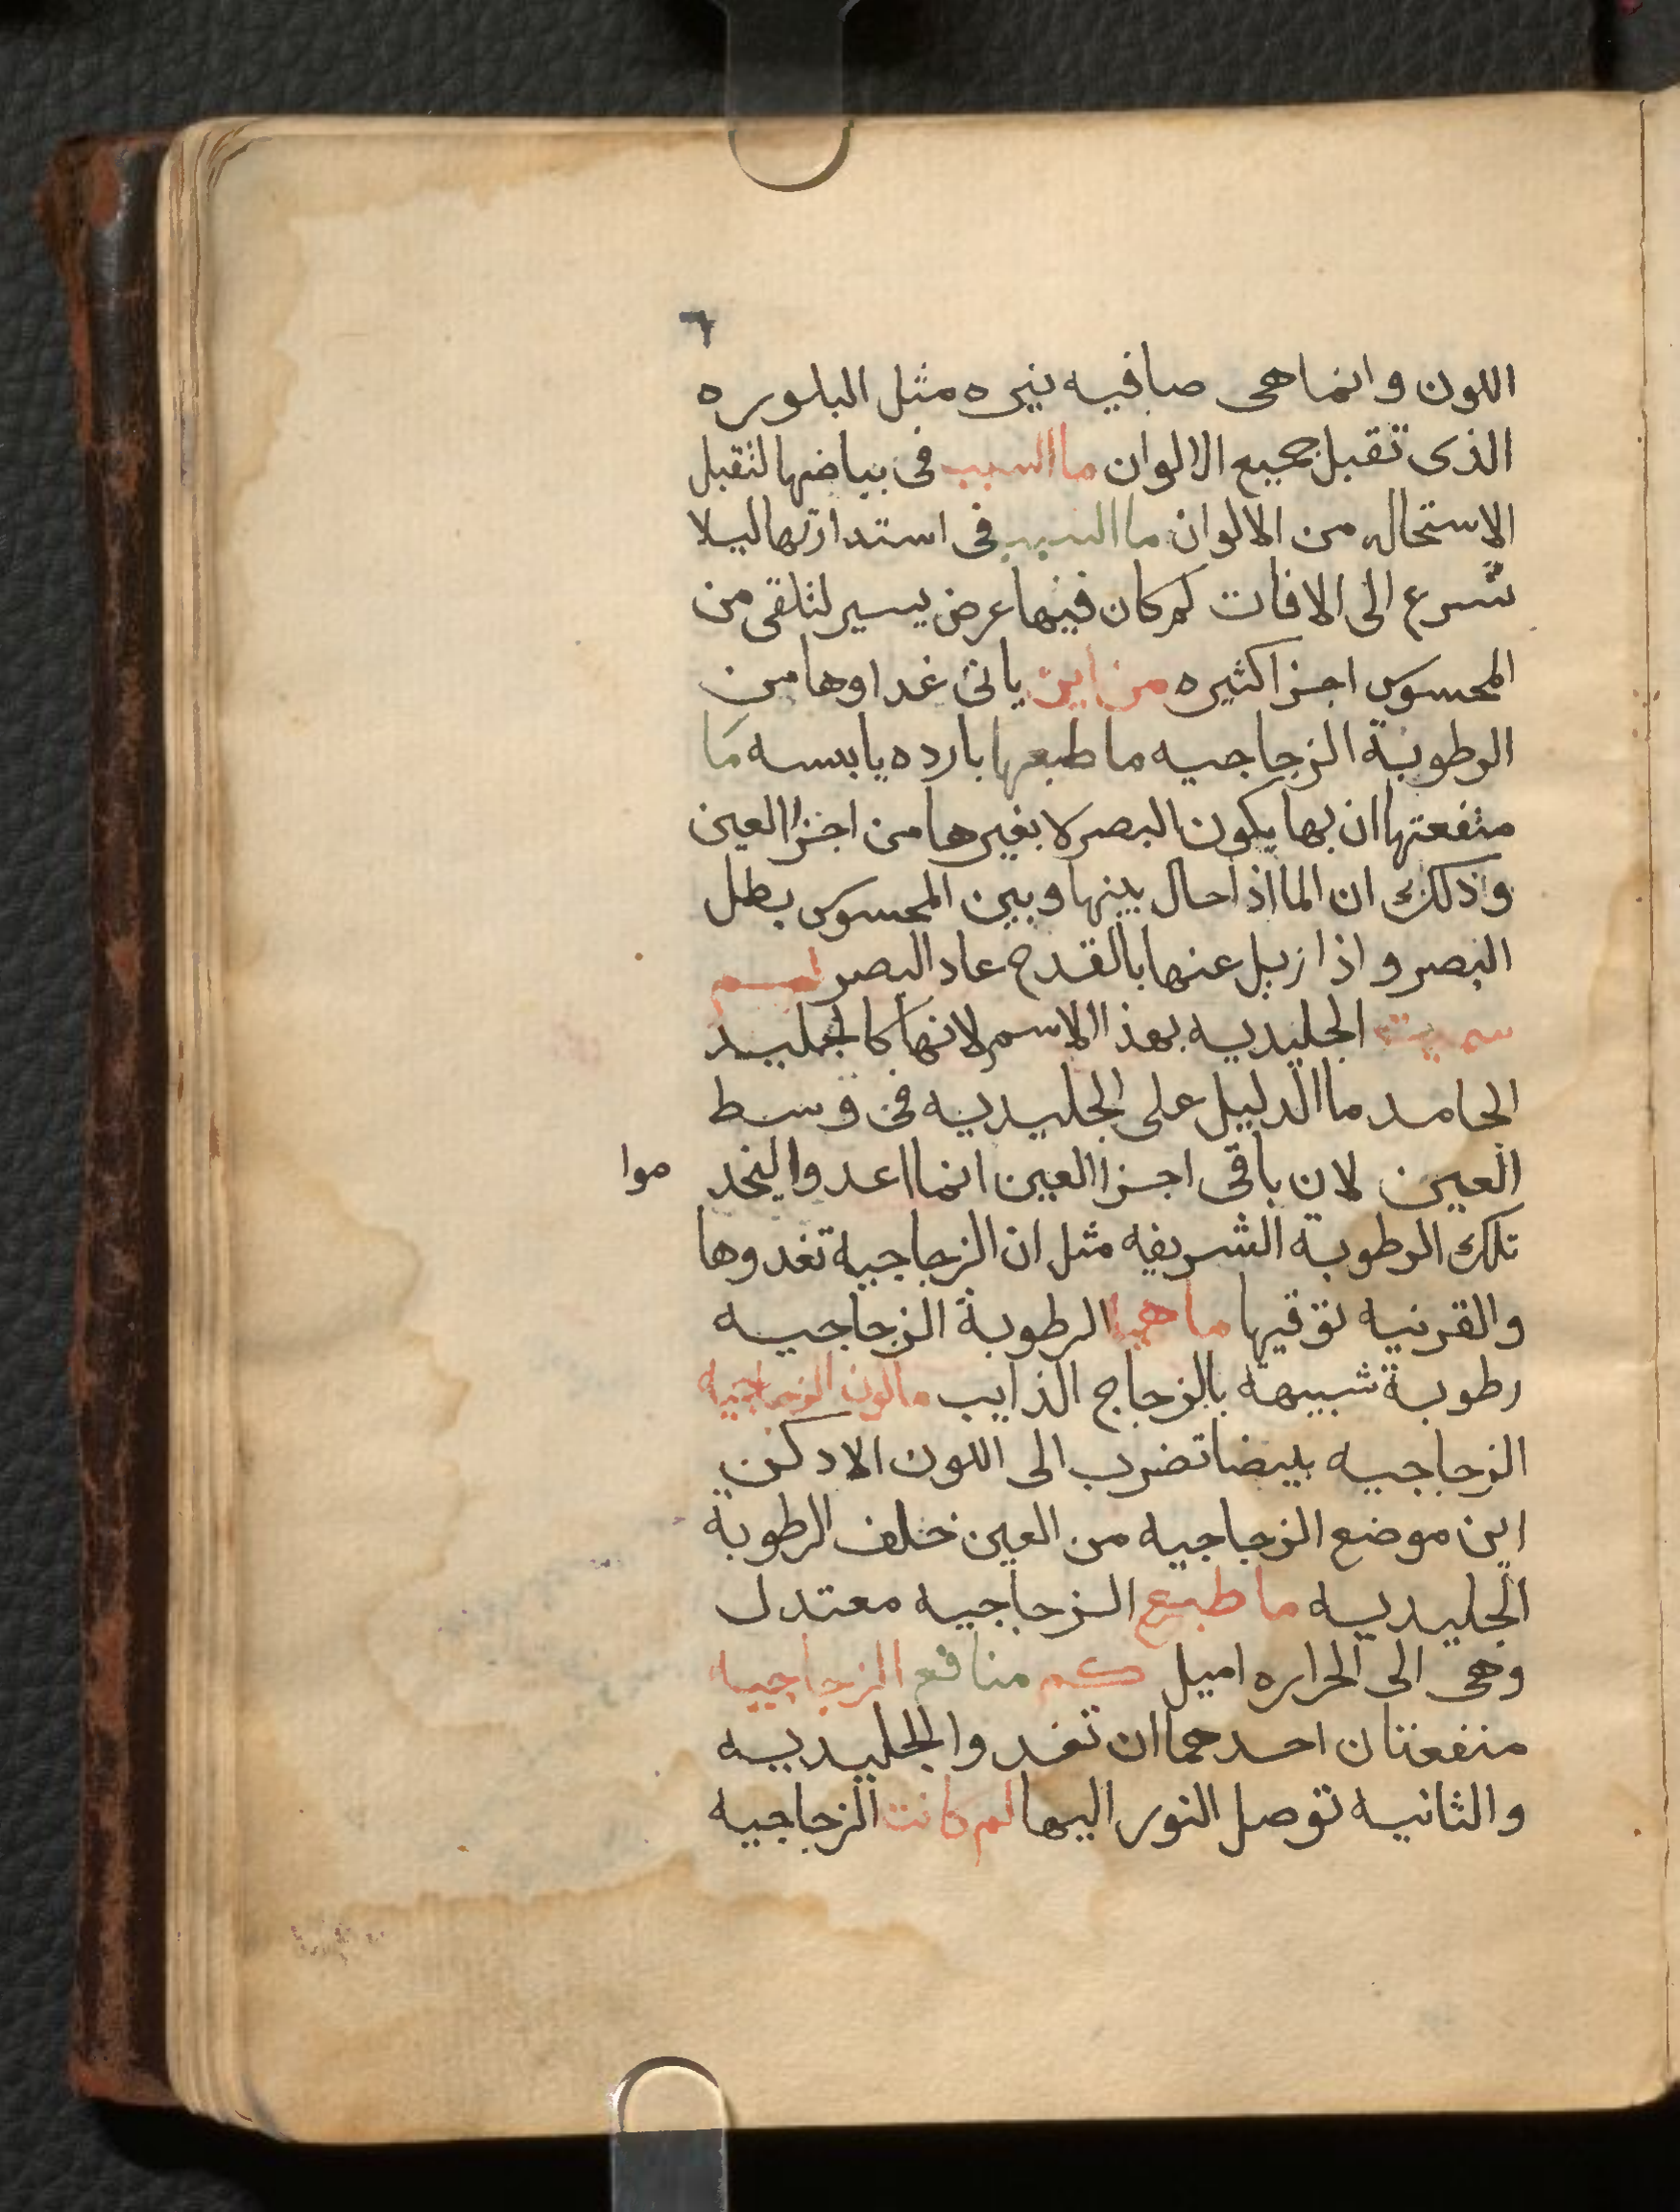 ٦
اللون وانما هى صافيه نيره مثل البلوره
الذى تقبل جميع الالوان ما السبب فى بياضها لتقبل
الاستحاله من الالوان ما السبب فى استدارتها ليلا
تسرع الى الافات لم كان فيها عرض يسير لتلقى من
المحسوس اجزا كثيره من اين ياتى غداوها من
الرطوبة الزجاجيه ما طبعها بارده يابسه ما
منفعتها ان بها يكون البصر لا بغيرها من اجزا العين
وذلك ان الما اذا حال بينها وبين المحسوس بطل
البصر واذا زيل عنها بالقدح عاد البصر لم
سميت الجليديه بهذا الاسم لانها كالجليد
الجامد ما الدليل على الجليديه فى وسط
العين لان باقى اجزا العين انما اعدوا ليخد موا
تلك الرطوبة الشريفه مثل ان الزجاجية تغدوها
والقرنيه توقيها ما هي الرطوبة الزجاجيه
رطوبة شبيهة بالزجاج الذايب ما لون الزجاجيه
الزجاجيه بيضا تضرب الى اللون الادكن
اين موضع الزجاجيه من العين خلف الرطوبة
الجليديه ما طبع الزجاجيه معتدل
وهى الى الحراره اميل كم منافع الزجاجيه
منفعتان احدهما ان تغدوا الجليديه
والثانيه توصل النور اليها لم كانت الزجاجيه